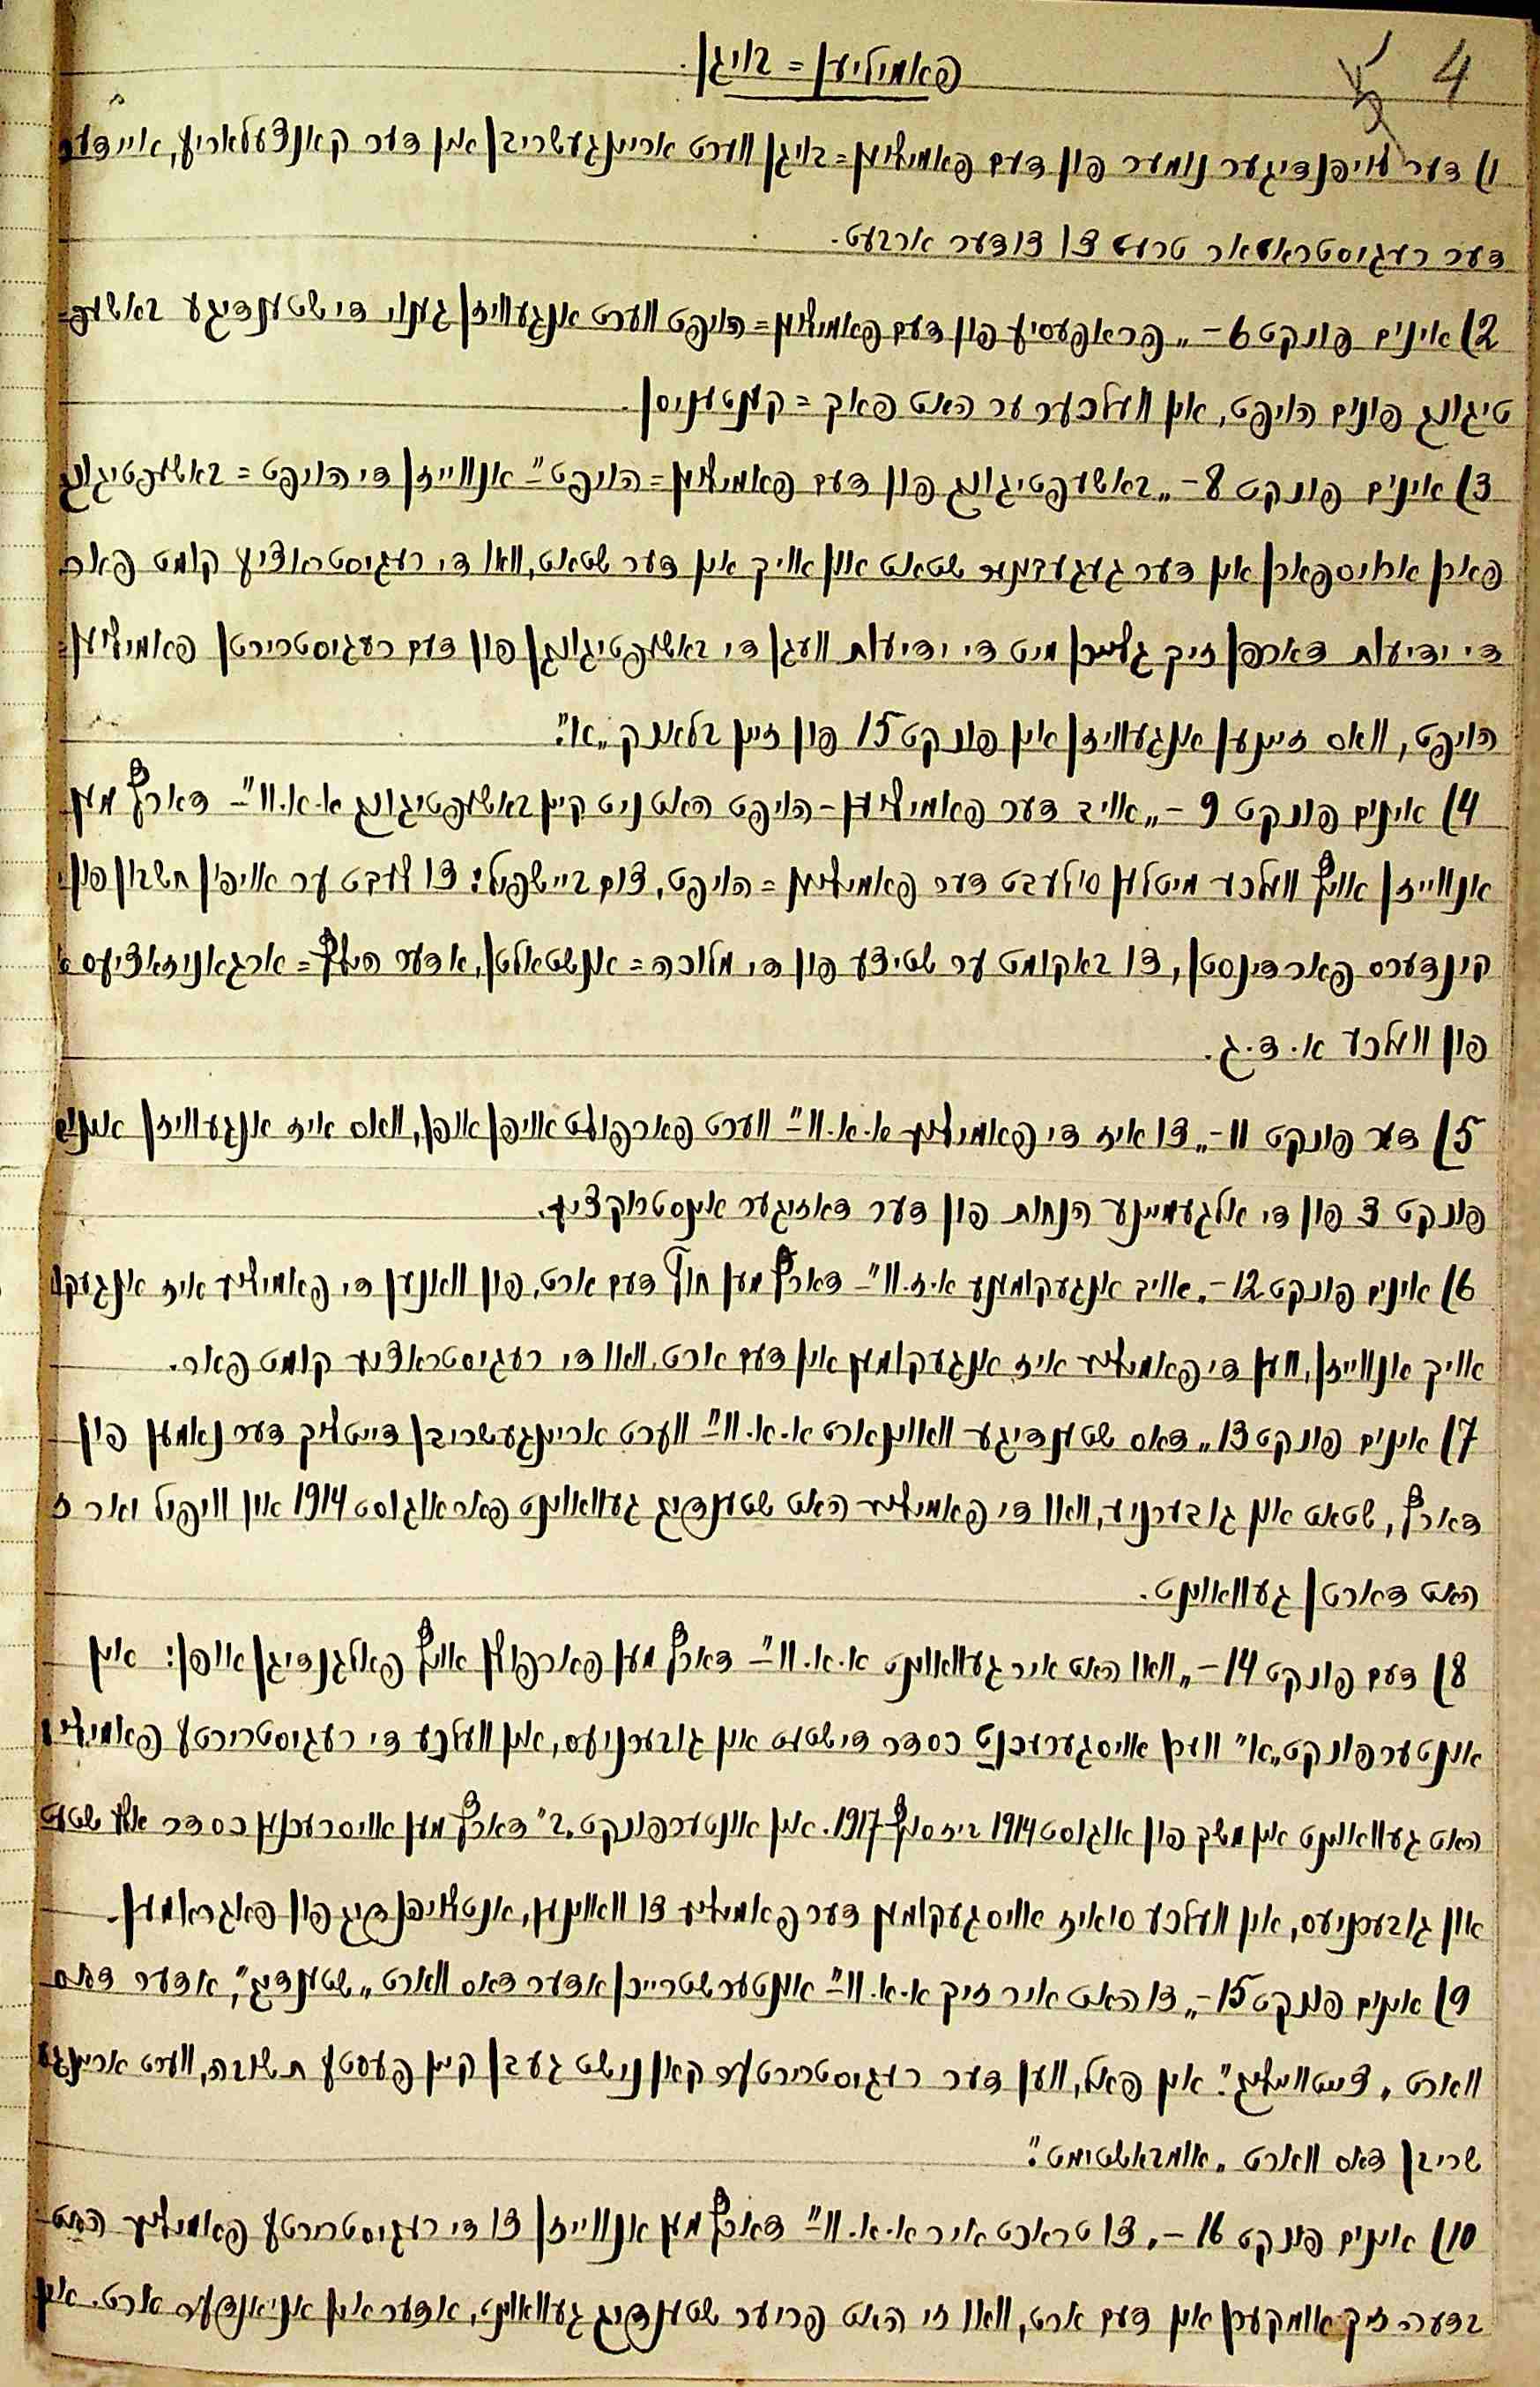 4
פאמיליען = בויגן.
1) דער לויפנדיגער נומער פון דעם פאמיליען = בויגן ווערט אריינגעשריבן אין דער קאנצעלאריע, איידער
דער רעגיסטראטאר טרעט צו צו דער ארבעט.
2) אינים פונקט 6 – „פראפעסיע פון דעם פאמיליען = הויפט ווערט אנגעוויזן גענוי די שטענדיגע באשעפ=
טיגונג פונים הויפט, אין וועלכער ער האט פאך = קענטעניסן.
3) אינים פונקט 8 – „באשעפטיגונג פון דעם פאמיליען = הויפט" – אנווייזן די הויפט = באשעפטיגונג
פארן ארויספארן אין דער געגעבענער שטאט און אויך אין דער שטאט, וואו די רעגיסטראציע קומט פאר.
די ידיעות דארפן זיך גלייכן מיט די ידיעות וועגן די באשעפטיגונגן פון דעם רעגיסטרירטן פאמיליען=
הויפט, וואס זיינען אנגעוויזן אין פונקט 15 פון זיין בלאנק „א".
4) אינים פונקט 9 – „אויב דער פאמיליען – הויפט האט ניט קיין באשעפטיגונג א. א. וו" – דארף מען
אנווייזן אויף וועלכע מיטלען סילעבט דער פאמיליען = הויפט, צום ביישפיל: צו לעבט ער אויפ'ן חשבון פון
קינדערס פארדינסטן, צו באקומט ער שטיצע פון די מלוכה = אנשטאלטן, אדער הילף = ארגאניזאציעס
פון וועלכע א. ד. ג.
5) דער פונקט 11 – „צו איז די פאמיליע א. א. וו" – ווערט פארפולט אויפן אופן, וואס איז אנגעוויזן אינים
פונקט 3 פון די אלגעמיינע הנחות פון דער דאזיגער אינסטרוקציע.
6) אינים פונקט 12 – „אויב אנגעקומענע א. ז. וו" – דארף מען חוץ דעם ארט, פון וואנען די פאמיליע איז אנגעקו
אויך אנווייזן, ווען די פאמיליע איז אנגעקומען אין דעם ארט, וואו די רעגיסטראציע קומט פאר.
7) אינים פונקט 13 „דאס שטענדיגע וואוינארט א. א. וו" ווערט אריינגעשריבן דייטליך דער נאמען פון
דארף, שטאט און גובערניע, וואו די פאמיליע האט שטענדיג געוואוינט פאר אוגוסט 1914 און וויפיל יאר ז
האט דארטן געוואוינט.
8) דעם פונקט 14 – „וואו האט איר געוואוינט א. א. וו" – דארף מען פארפולן אויף פאלגענדיגן אופן: אין
אונטערפונקט „א" ווערן אויסגערעכנט כסדר די שטעט און גובערניעס, אין וועלכע די רעגיסטרירטע פאמיליע
האט געוואוינט אין משך פון אוגוסט 1914 ביז סוף 1917. אין אונטערפונקט „ב" דארף מען אויסרעכנען כסדר אלע שטעט
און גובערניעס, אין וועלכע סאיז אויסגעקומען דער פאמיליע צו וואוינען, אנטלויפנדיג פון פאגראמען.
9) אינים פונקט 15 – „צו האט איר זיך א. א. וו" אונטערשטרייכן אדער דאס ווארט „שטענדיג", אדער דאס
ווארט „צייטווייליג". אין פאל, ווען דער רעגיסטרירטער קאן נישט געבן קיין פעסטע תשובה, ווערט אריינגע
שריבן דאס ווארט „אומבאשטימט".
10) אינים פונקט 16 – „צו טראכט איר א. א. וו" דארף מען אנווייזן צו די רעגיסטרירטע פאמיליע האט
בדעה זיך אומקערן אין דעם ארט, וואו זי האט פריער שטענדיג געוואוינט, אדער אין אן אנדער ארט. אין